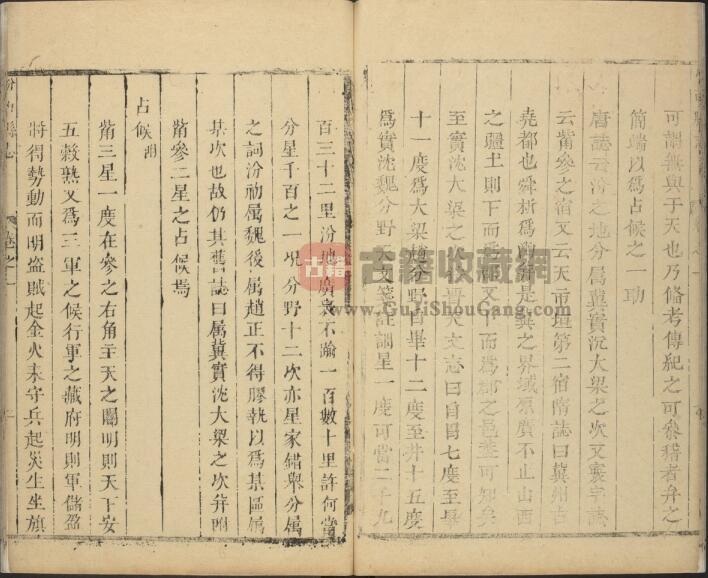 可謂無與于天也乃脩考傳紀之可叅稽者弁之
簡端以爲占候之一助
唐誌云汾之地分属冀實沉大梁之次又寰宇誌
云觜參之宿又云天市垣第二宿隋誌曰冀州古
堯都也舜析爲幽并是冀之界域原廣不止山西
之疆土則下而爲又下而爲郡之邑
至實沈大梁之次晋天文志曰自胃七度至畢
十一度爲大梁趙分野自畢十二度至井十五度
爲實沈魏分野天文訓星一度可當二千九
百三十二里汾地廣袤不踰一百數十里許何當
分星千百之一况分野十二次亦星家錯舉分属
之詞汾初属魏後属趙正不得膠執以爲某區属
某次也故仍其舊誌曰属冀實沈大梁之次并附
觜參二星之占候焉
占候附
觜三星一度在參之右角主天之關明則天下安
五榖熟又爲三軍之候行軍之藏府明則軍儲盈
將得勢動而明盗賊起金火来守兵起災生坐旗
卷之一
古籍
古籍收藏網
www.GuJiShouCang.com